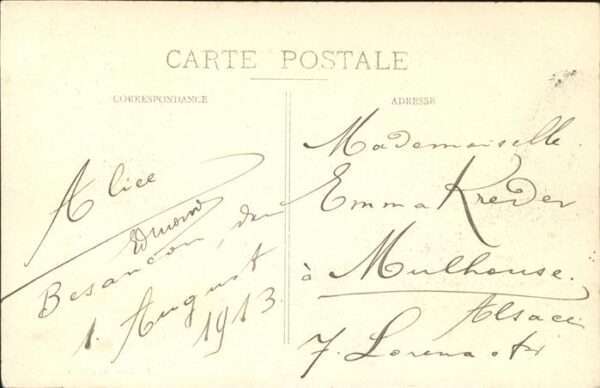 CARTE POSTALE
CORRESPONDANCE
ADRESSE
Alice
Edmond
Besançon, den
1. August
1913.
Mademoiselle
Emma Kreder
à Mulhouse.
Alsace
7. Lorena